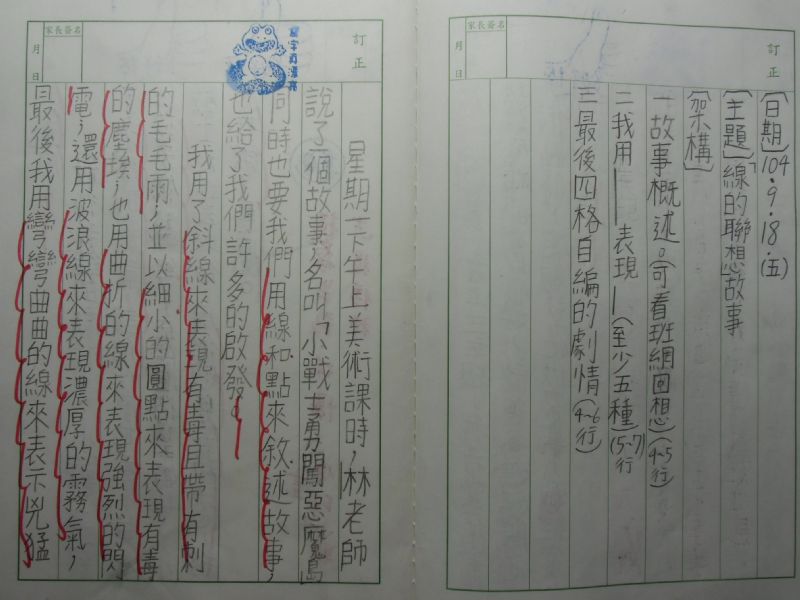 訂正
家長簽名
月 日
〔日期〕104.9.18.(五)
〔主題〕「線的聯想」故事
〔架構〕
一故事概述。(可看班網回想)(4~5行)
二我用——表現—(至少五種)(5~7行)
三最後四格自編的劇情(4~6行)
訂正
家長簽名
月 日
星期一下午上美術課時,林老師
說了一個故事,名叫「小戰士勇闖惡魔島」
同時也要我們用線和點來敘述故事,
也給了我們許多的啟發。
我用了斜線來表現有毒且帶有刺
的毛毛雨,並以細小的圓點來表現有毒
的塵埃,也用曲折的線來表現強烈的閃
電,還用波浪線來表現濃厚的霧氣,
最後我用彎彎曲曲的線來表示兇猛